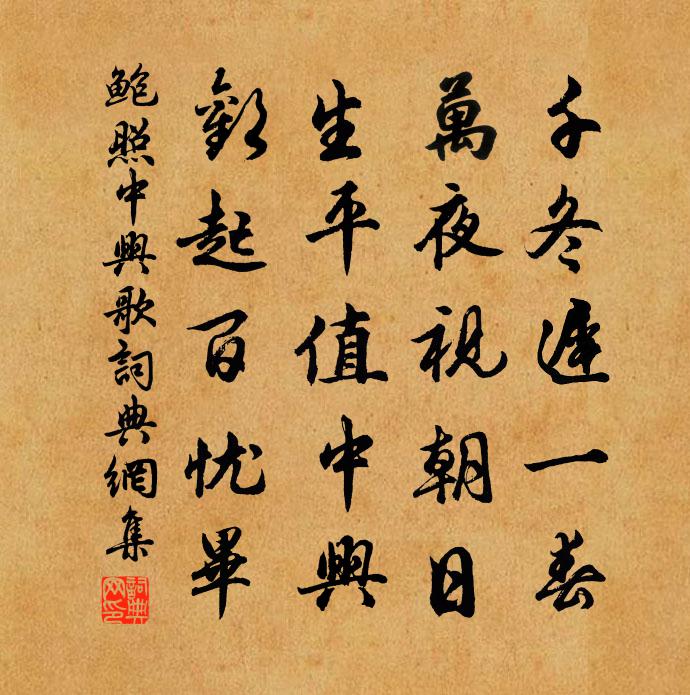 千冬遲一春
萬夜視朝日
生平值中興
歡起百忧畢
鲍照中興歌詞典網集
詞典網印